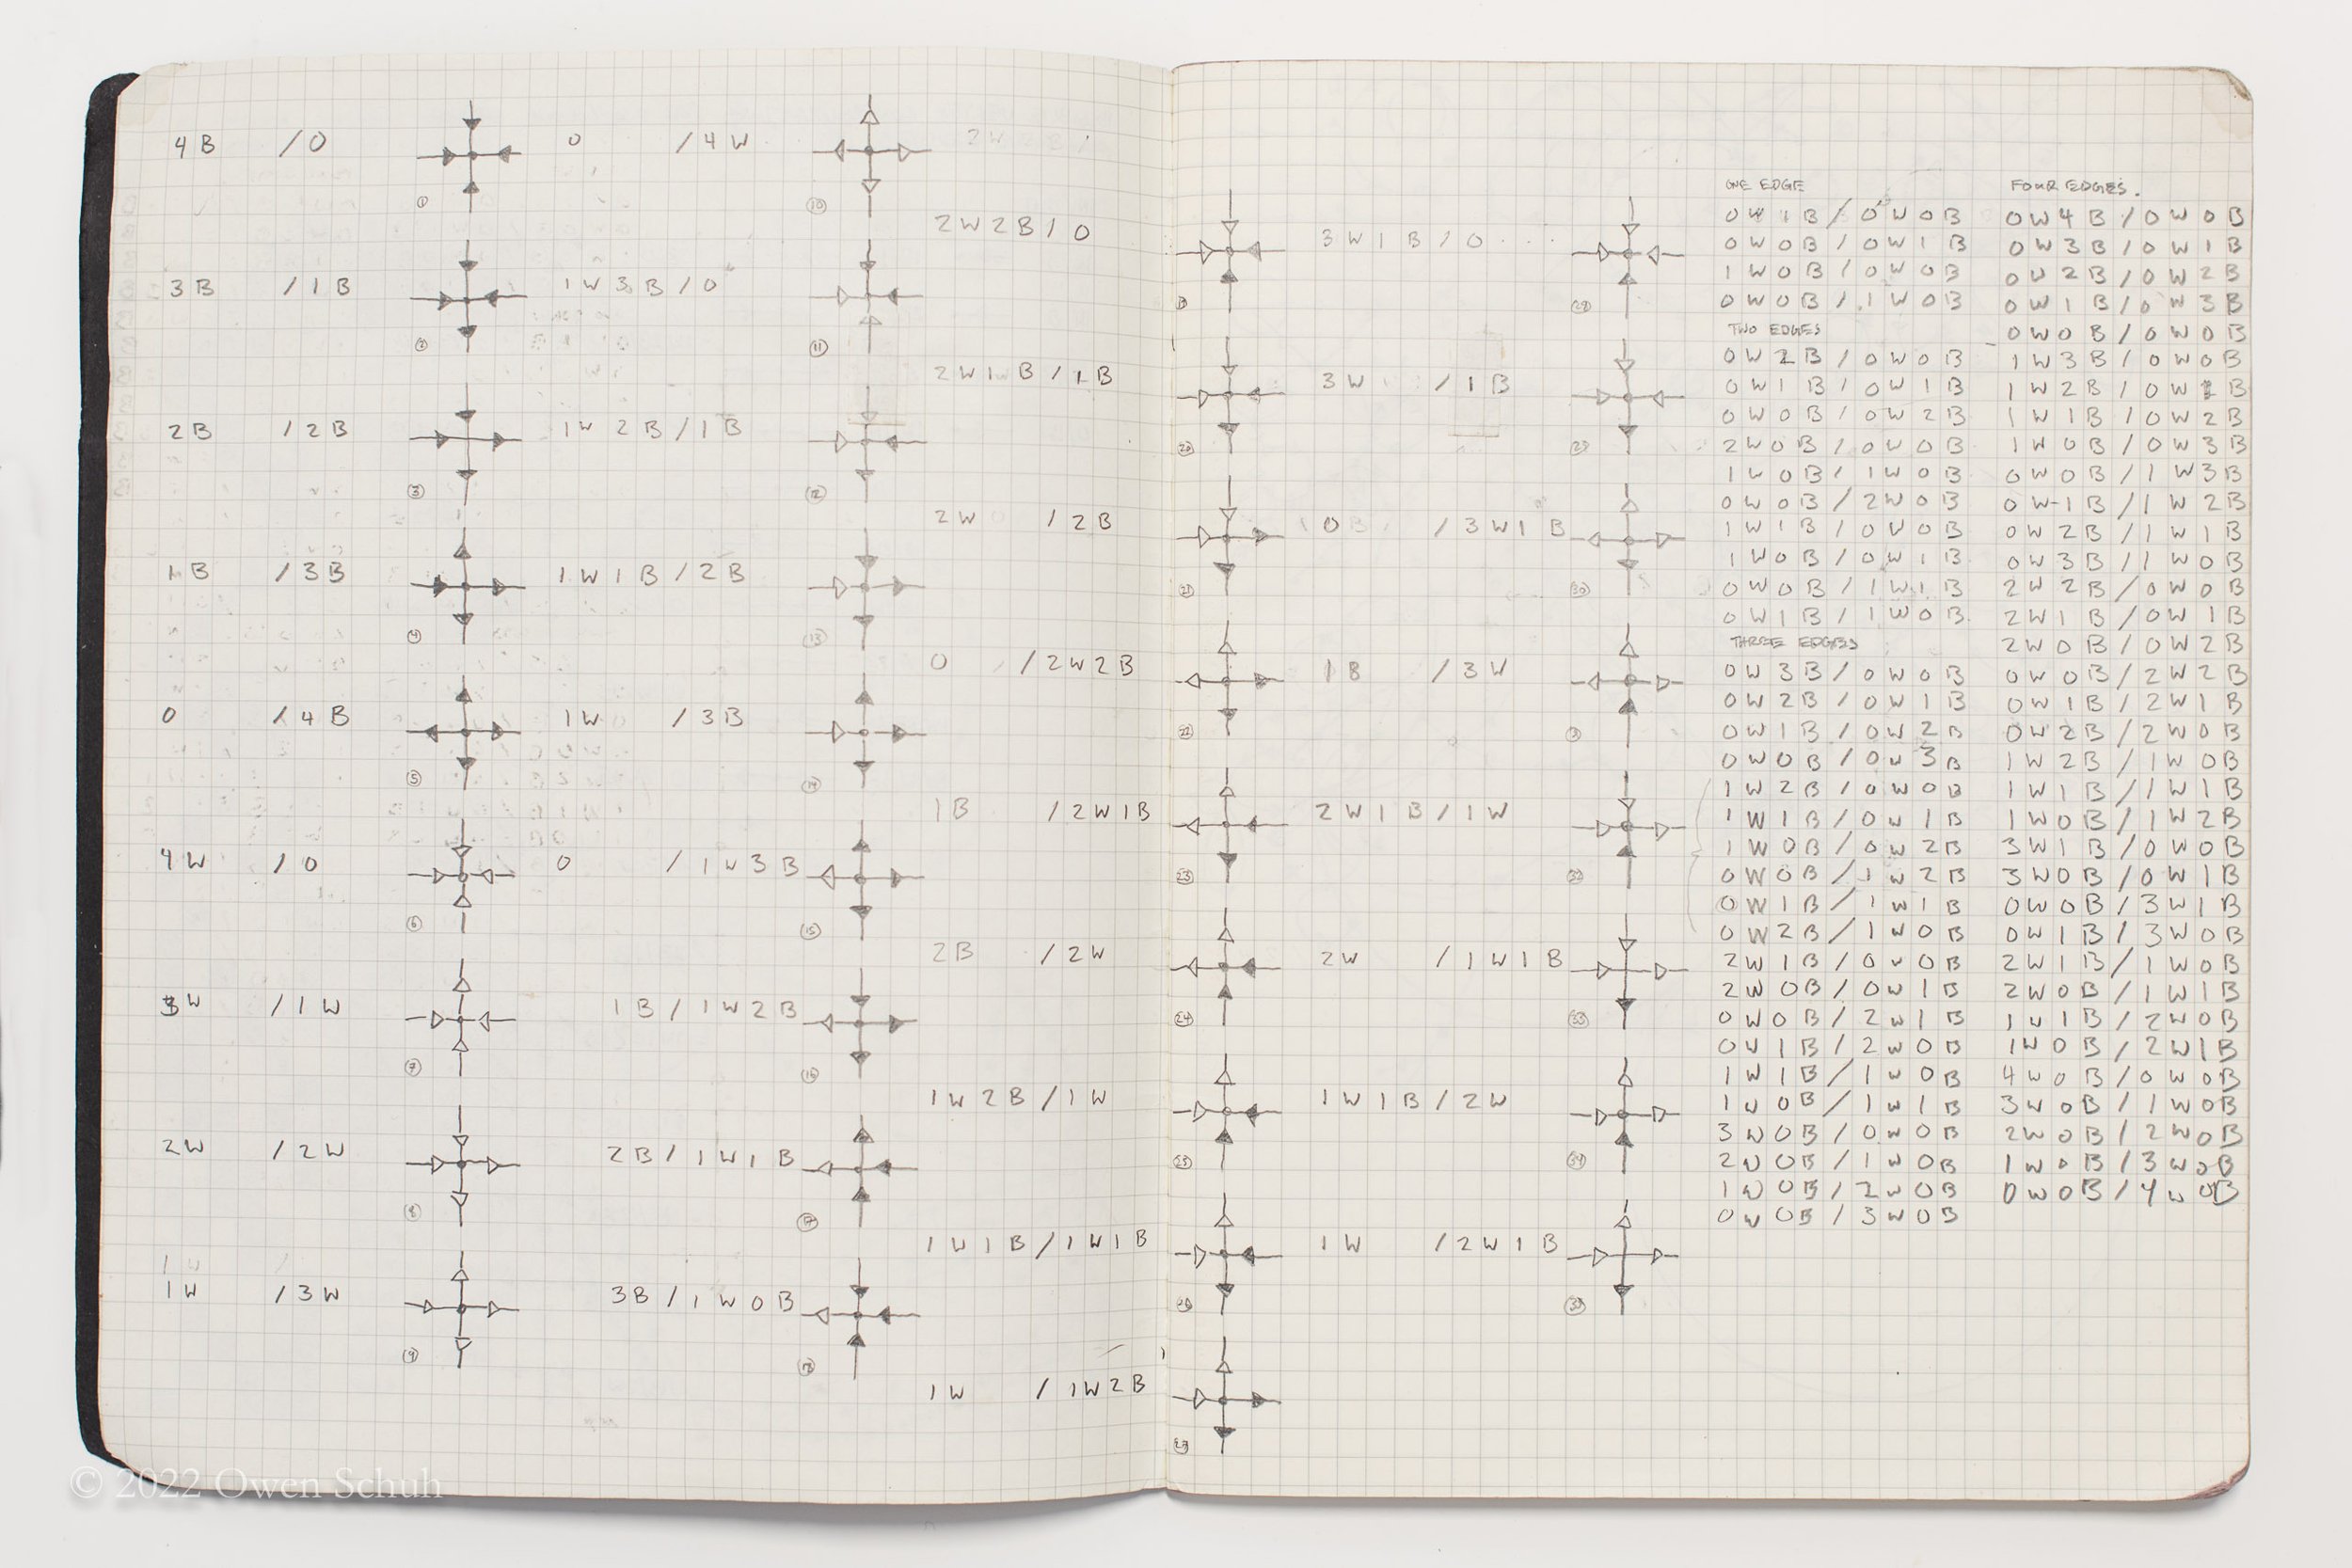 4B /0
①
3B /1B
②
2B /2B
③
1B /3B
④
0 /4B
⑤
4W /0
⑥
3W /1W
⑦
2W /2W
⑧
1W
1W /3W
⑨
0 /4W
⑩
1W3B/0
⑪
1W2B/1B
⑫
1W1B/2B
⑬
1W /3B
⑭
0 /1W3B
⑮
1B/1W2B
⑯
2B/1W1B
⑰
3B/1W0B
⑱
2W2B/0
2W1B/1B
⑳
2W /2B
㉑
0 /2W2B
㉒
1B /2W1B
㉓
2B /2W
㉔
1W2B/1W
㉕
1W1B/1W1B
㉖
1W /1W2B
㉗
3W1B/0
㉘
3W /1B
㉙
0 /3W1B
㉚
1B /3W
2W1B/1W
㉜
2W /1W1B
㉝
1W1B/2W
㉞
1W /2W1B
㉟
ONE EDGE
0W1B/0W0B
0W0B/0W1B
1W0B/0W0B
0W0B/1W0B
TWO EDGES
0W2B/0W0B
0W1B/0W1B
0W0B/0W2B
2W0B/0W0B
1W0B/1W0B
0W0B/2W0B
1W1B/0W0B
1W0B/0W1B
0W0B/1W1B
0W1B/1W0B
THREE EDGES
0W3B/0W0B
0W2B/0W1B
0W1B/0W2B
0W0B/0W3B
1W2B/0W0B
1W1B/0W1B
1W0B/0W2B
0W0B/1W2B
0W1B/1W1B
0W2B/1W0B
2W1B/0W0B
2W0B/0W1B
0W0B/2W1B
0W1B/2W0B
1W1B/1W0B
1W0B/1W1B
3W0B/0W0B
2W0B/1W0B
1W0B/2W0B
0W0B/3W0B
FOUR EDGES.
0W4B/0W0B
0W3B/0W1B
0W2B/0W2B
0W1B/0W3B
0W0B/0W0B
1W3B/0W0B
1W2B/0W1B
1W1B/0W2B
1W0B/0W3B
0W0B/1W3B
0W1B/1W2B
0W2B/1W1B
0W3B/1W0B
2W2B/0W0B
2W1B/0W1B
2W0B/0W2B
0W0B/2W2B
0W1B/2W1B
0W2B/2W0B
1W2B/1W0B
1W1B/1W1B
1W0B/1W2B
3W1B/0W0B
3W0B/0W1B
0W0B/3W1B
0W1B/3W0B
2W1B/1W0B
2W0B/1W1B
1W1B/2W0B
1W0B/2W1B
4W0B/0W0B
3W0B/1W0B
2W0B/2W0B
1W0B/3W0B
0W0B/4W0B
© 2022 Owen Schuh